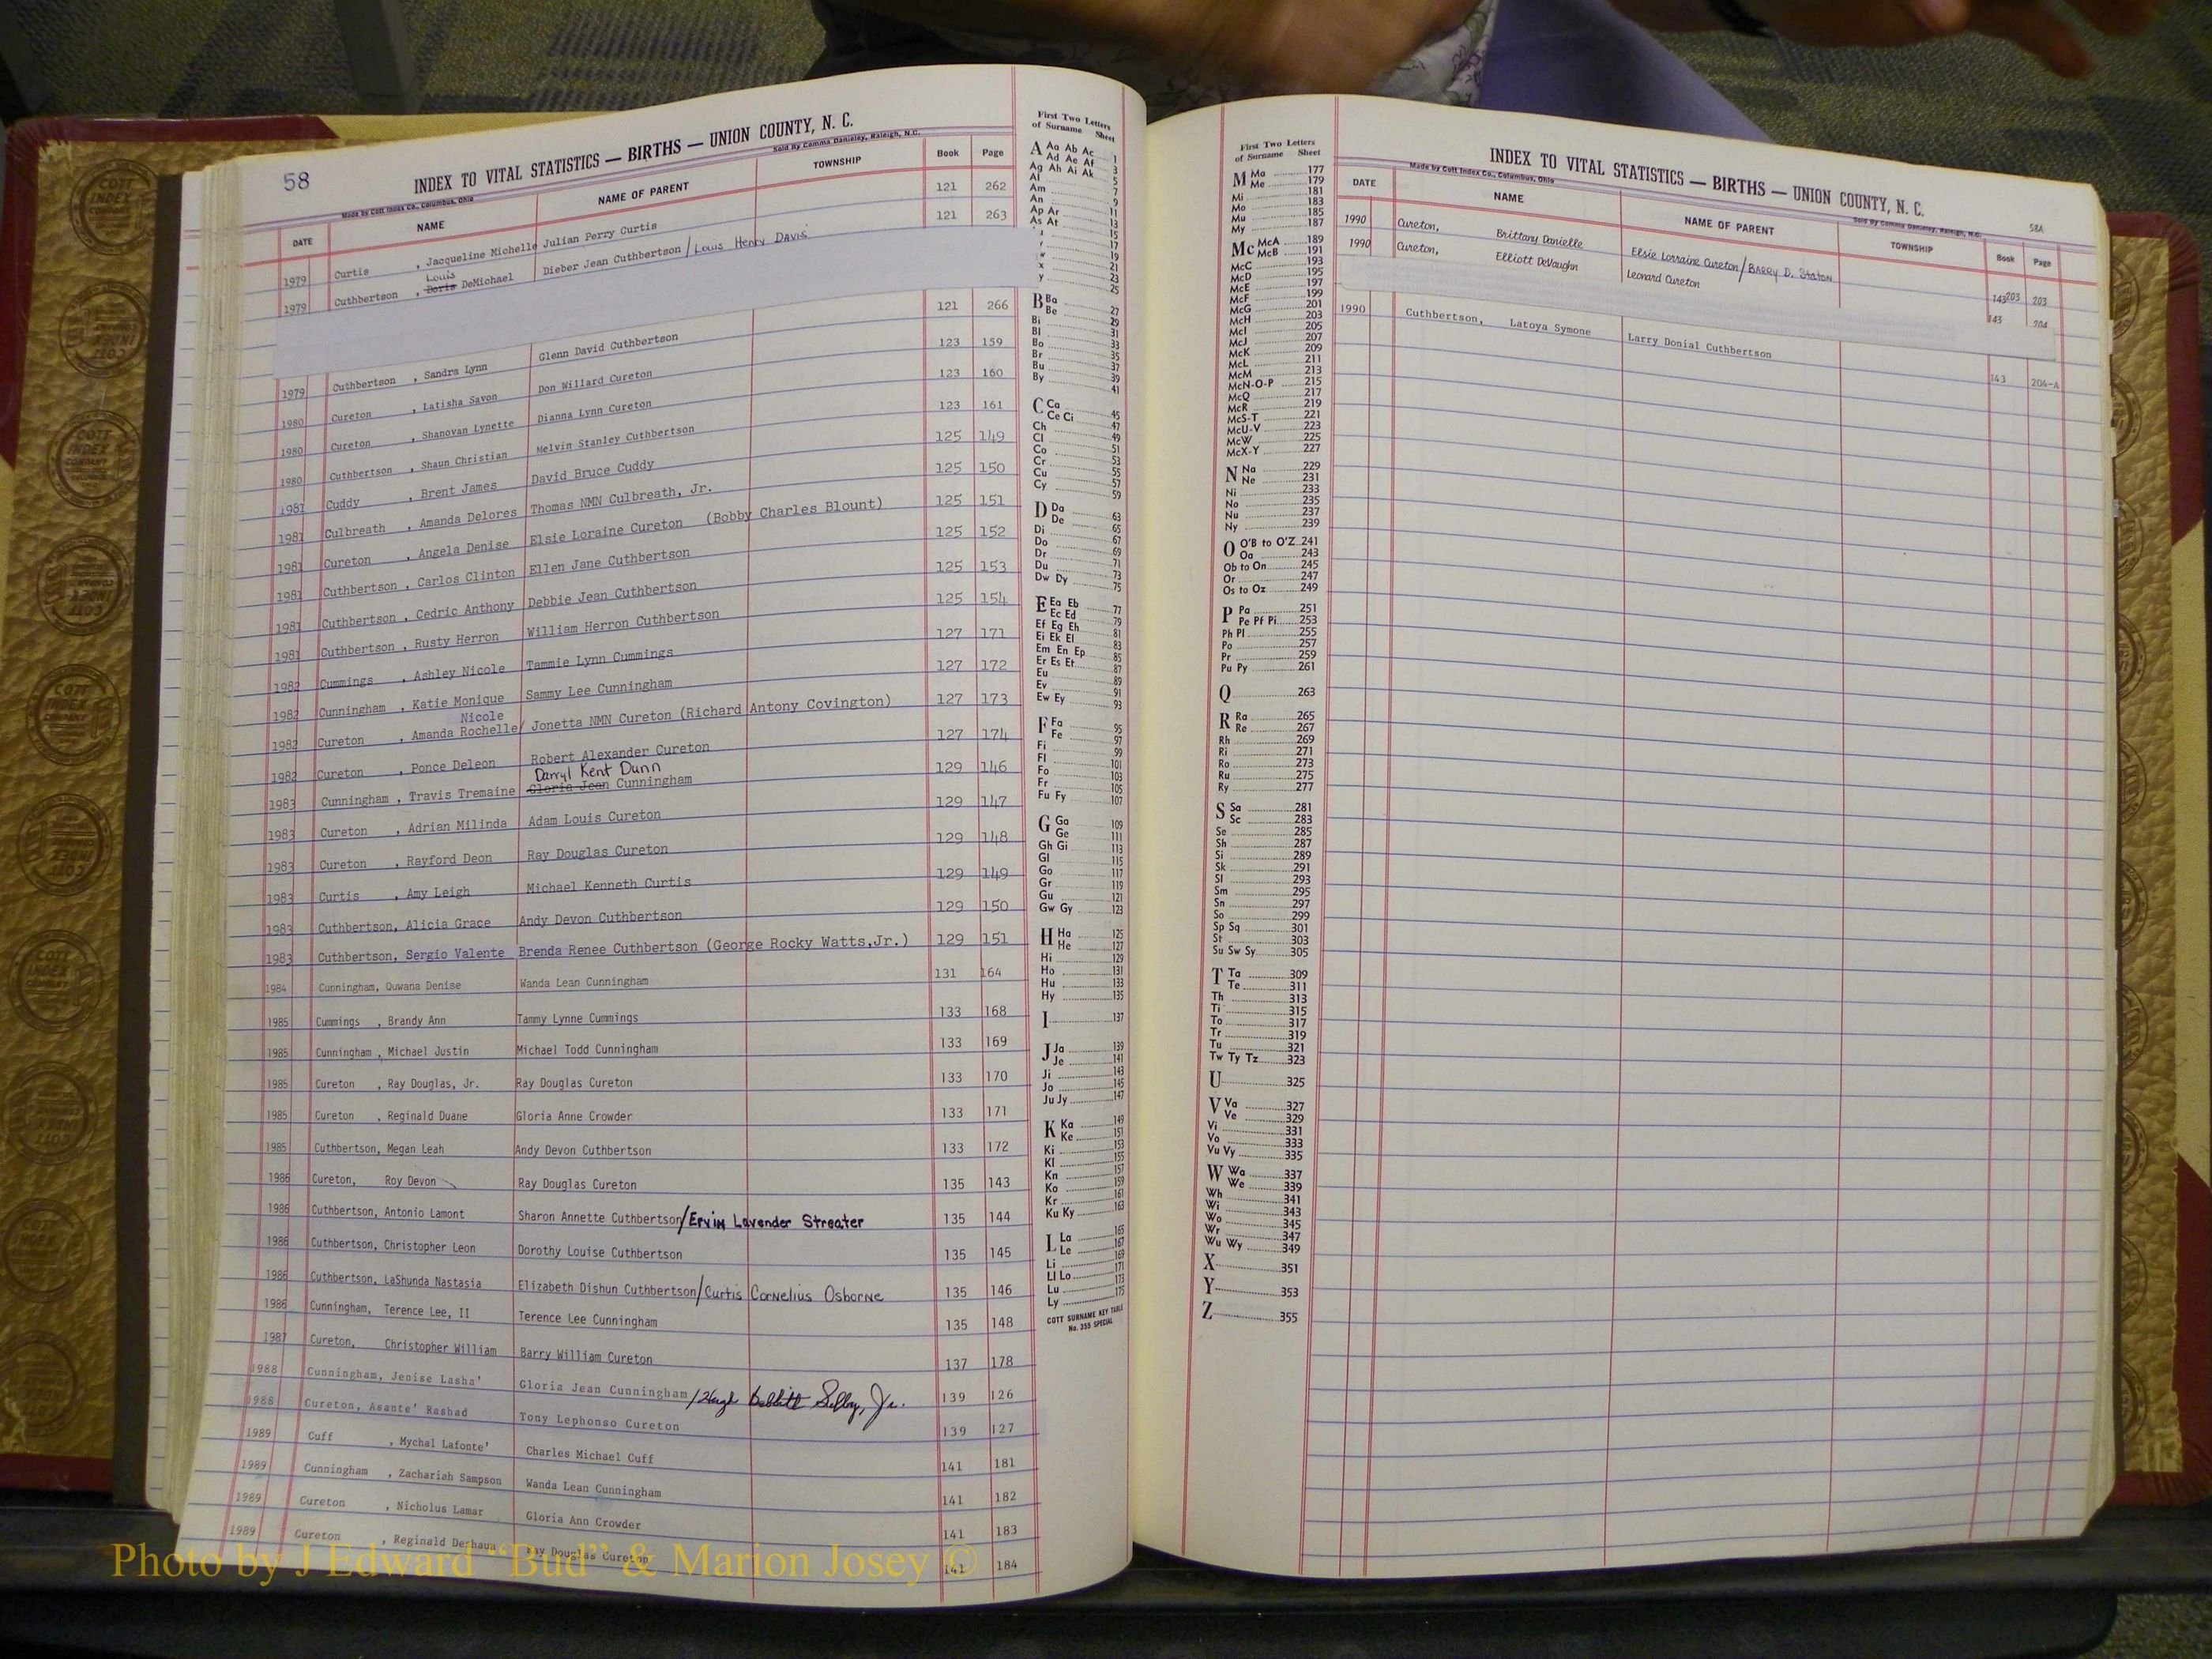 58
INDEX TO VITAL STATISTICS — BIRTHS — UNION COUNTY, N. C.
Made by Cott Index Co., Columbus, Ohio
Sold By Comma Danieley, Raleigh, N.C.
DATE NAME NAME OF PARENT TOWNSHIP Book Page
1979 Curtis , Jacqueline Michelle Julian Perry Curtis 121 262
Louis
1979 Cuthbertson , Doris DeMichael Dieber Jean Cuthbertson / Louis Henry Davis 121 263
1979 Cuthbertson , Sandra Lynn Glenn David Cuthbertson 121 266
1980 Cureton , Latisha Savon Don Willard Cureton 123 159
1980 Cureton , Shanovan Lynette Dianna Lynn Cureton 123 160
1980 Cuthbertson , Shaun Christian Melvin Stanley Cuthbertson 123 161
1981 Cuddy , Brent James David Bruce Cuddy 125 149
1981 Culbreath , Amanda Delores Thomas NMN Culbreath, Jr. 125 150
1981 Cureton , Angela Denise Elsie Loraine Cureton (Bobby Charles Blount) 125 151
1981 Cuthbertson , Carlos Clinton Ellen Jane Cuthbertson 125 152
1981 Cuthbertson , Cedric Anthony Debbie Jean Cuthbertson 125 153
1981 Cuthbertson , Rusty Herron William Herron Cuthbertson 125 154
1982 Cummings , Ashley Nicole Tammie Lynn Cummings 127 171
1982 Cunningham , Katie Monique Sammy Lee Cunningham 127 172
Nicole
1982 Cureton , Amanda Rochelle/ Jonetta NMN Cureton (Richard Antony Covington) 127 173
1982 Cureton , Ponce Deleon Robert Alexander Cureton 127 174
Darryl Kent Dunn
1983 Cunningham , Travis Tremaine Gloria Jean Cunningham 129 146
1983 Cureton , Adrian Milinda Adam Louis Cureton 129 147
1983 Cureton , Rayford Deon Ray Douglas Cureton 129 148
1983 Curtis , Amy Leigh Michael Kenneth Curtis 129 149
1983 Cuthbertson, Alicia Grace Andy Devon Cuthbertson 129 150
1983 Cuthbertson, Sergio Valente Brenda Renee Cuthbertson (George Rocky Watts,Jr.) 129 151
1984 Cunningham, Quwana Denise Wanda Lean Cunningham 131 164
1985 Cummings , Brandy Ann Tammy Lynne Cummings 133 168
1985 Cunningham , Michael Justin Michael Todd Cunningham 133 169
1985 Cureton , Ray Douglas, Jr. Ray Douglas Cureton 133 170
1985 Cureton , Reginald Duane Gloria Anne Crowder 133 171
1985 Cuthbertson, Megan Leah Andy Devon Cuthbertson 133 172
1986 Cureton, Roy Devon Ray Douglas Cureton 135 143
1986 Cuthbertson, Antonio Lamont Sharon Annette Cuthbertson/Ervin Lavender Streater 135 144
1986 Cuthbertson, Christopher Leon Dorothy Louise Cuthbertson 135 145
1986 Cuthbertson, LaShunda Nastasia Elizabeth Dishun Cuthbertson/Curtis Cornelius Osborne 135 146
1986 Cunningham, Terence Lee, II Terence Lee Cunningham 135 148
1987 Cureton, Christopher William Barry William Cureton 137 178
1988 Cunningham, Jenise Lasha' Gloria Jean Cunningham / Jr. 139 126
1988 Cureton, Asante' Rashad Tony Lephonso Cureton 139 127
1989 Cuff , Mychal Lafonte' Charles Michael Cuff 141 181
1989 Cunningham , Zachariah Sampson Wanda Lean Cunningham 141 182
1989 Cureton , Nicholus Lamar Gloria Ann Crowder 141 183
1989 Cureton , Reginald Deshaun Ray Douglas Cureton 141 184
First Two Letters
of Surname Sheet
A Aa Ab Ac 1
Ad Ae Af 3
Ag Ah Ai Ak 5
Al 7
Am 9
An 11
Ap Ar 13
As At 15
17
19
x 21
y 23
25
B Ba 27
Be 29
Bi 31
Bl 33
Bo 35
Br 37
Bu 39
By 41
C Ca 45
Ce Ci 47
Ch 49
Cl 51
Co 53
Cr 55
Cu 57
Cy 59
D Da 63
De 65
Di 67
Do 69
Dr 71
Du 73
Dw Dy 75
E Ea Eb 77
Ec Ed 79
Ef Eg Eh 81
Ei Ek El 83
Em En Ep 85
Er Es Et 87
Eu 89
Ev 91
Ew Ey 93
F Fa 95
Fe 97
Fi 99
Fl 101
Fo 103
Fr 105
Fu Fy 107
G Ga 109
Ge 111
Gh Gi 113
Gl 115
Go 117
Gr 119
Gu 121
Gw Gy 123
H Ha 125
He 127
Hi 129
Ho 131
Hu 133
Hy 135
I 137
J Ja 139
Je 141
Ji 143
Jo 145
Ju Jy 147
K Ka 149
Ke 151
Ki 153
Kl 155
Kn 157
Ko 159
Kr 161
Ku Ky 163
L La 165
Le 167
Li 169
Ll Lo 171
Lu 173
Ly 175
COTT SURNAME KEY TABLE
No. 355 SPECIAL
First Two Letters
of Surname Sheet
M Ma 177
Me 179
Mi 181
Mo 183
Mu 185
My 187
Mc McA 189
McB 191
McC 193
McD 195
McE 197
McF 199
McG 201
McH 203
McI 205
McJ 207
McK 209
McL 211
McM 213
McN-O-P 215
McQ 217
McR 219
McS-T 221
McU-V 223
McW 225
McX-Y 227
N Na 229
Ne 231
Ni 233
No 235
Nu 237
Ny 239
O O'B to O'Z 241
Oa 243
Ob to On 245
Or 247
Os to Oz 249
P Pa 251
Pe Pf Pi 253
Ph Pl 255
Po 257
Pr 259
Pu Py 261
Q 263
R Ra 265
Re 267
Rh 269
Ri 271
Ro 273
Ru 275
Ry 277
S Sa 281
Sc 283
Se 285
Sh 287
Si 289
Sk 291
Sl 293
Sm 295
Sn 297
So 299
Sp Sq 301
St 303
Su Sw Sy 305
T Ta 309
Te 311
Th 313
Ti 315
To 317
Tr 319
Tu 321
Tw Ty Tz 323
U 325
V Va 327
Ve 329
Vi 331
Vo 333
Vu Vy 335
W Wa 337
We 339
Wh 341
Wi 343
Wo 345
Wr 347
Wu Wy 349
X 351
Y 353
Z 355
INDEX TO VITAL STATISTICS — BIRTHS — UNION COUNTY, N. C.
Made by Cott Index Co., Columbus, Ohio
58A
DATE NAME NAME OF PARENT TOWNSHIP Book Page
1990 Cureton, Brittany Danielle Elsie Lorraine Cureton/BARRY D. Staton 143 203 203
1990 Cureton, Elliott DeVaughn Leonard Cureton 143 204
1990 Cuthbertson, Latoya Symone Larry Donial Cuthbertson 143 204-A
Photo by J Edward “Bud” & Marion Josey ©